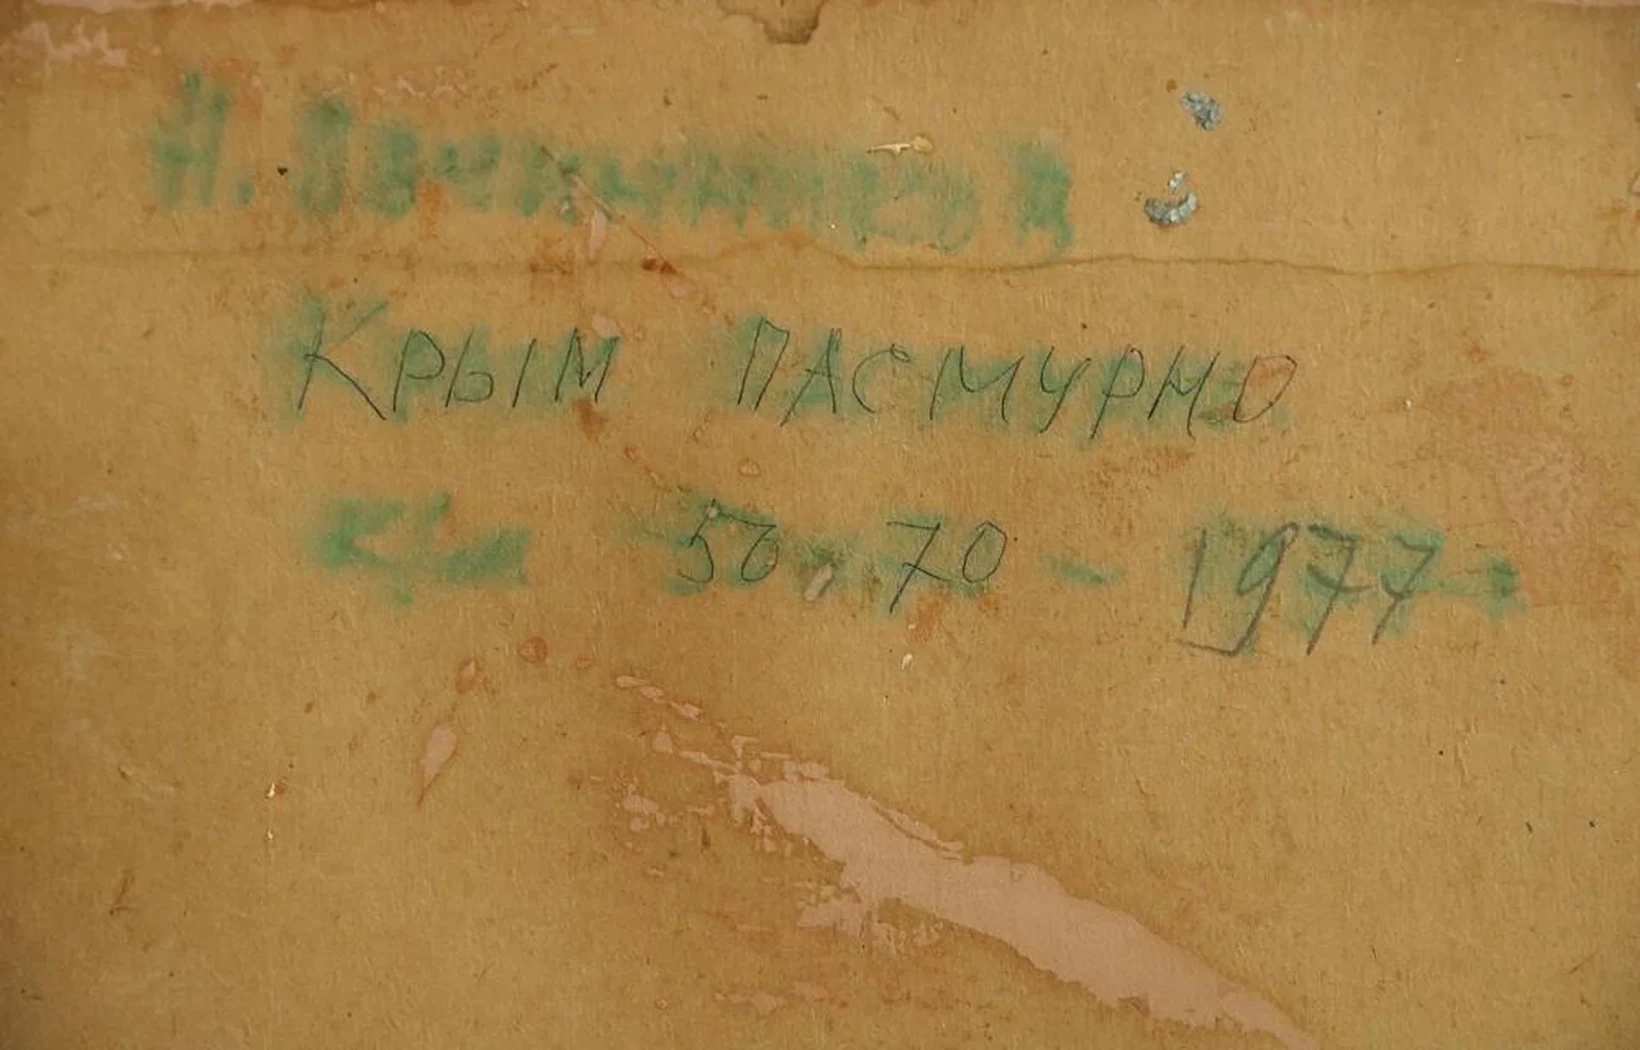 Н.
Крым ПАСМУРНО
50 х 70 - 1977